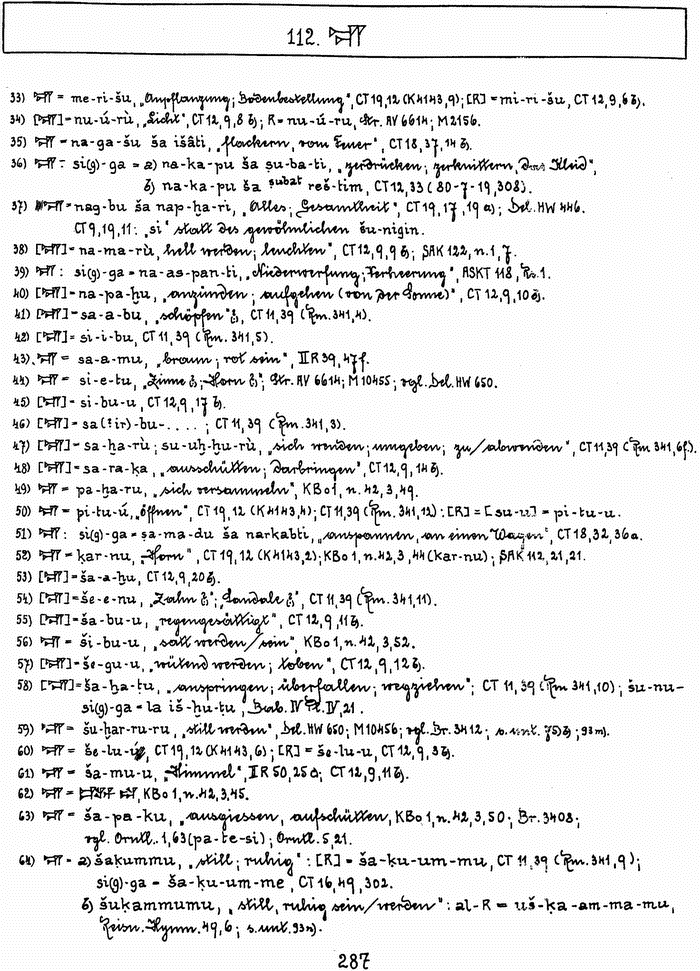 112. 𒋛
33) 𒋛 = me-ri-šu, „Anpflanzung; Bodenbestellung“, CT 19,12 (K4143,9); [R] = mi-ri-šu, CT 12,9,6b).
34) [𒋛] = nu-ú-rù, „Licht“, CT 12,9,8b; R = nu-ú-ru, Str. AV 6614; M 2156.
35) 𒋛 = na-ga-šu ša išâti, „flackern, vom Feuer“, CT 18,37,14b.
36) 𒋛 : si(g)-ga = a) na-ka-pu ša ṣu-ba-ti, „zerdrücken; zerknittern, das Kleid“,
b) na-ka-pu ša ṣubat reš-tim, CT 12,33 (80-7-19,308).
37) 𒋛 = nag-bu ša nap-ḫa-ri, „Alles; Gesamtheit“, CT 19,17,19a); Del. HW 446.
CT 9,19,11: „si“ statt des gewöhnlichen šu-nigin.
38) [𒋛] = na-ma-rù, „hell werden; leuchten“, CT 12,9,9b; SAK 122, n.1,7.
39) 𒋛 : si(g)-ga = na-as-pan-ti, „Niederwerfung; Verheerung“, ASKT 118, Rs.1.
40) [𒋛] = na-pa-ḫu, „anzünden; aufgehen (von der Sonne)“, CT 12,9,10b.
41) [𒋛] = sa-a-bu, „schöpfen“?, CT 11,39 (Rm.341,4).
42) [𒋛] = si-i-bu, CT 11,39 (Rm.341,5).
43) 𒋛 = sa-a-mu, „braun; rot sein“, II R 39,47f.
44) 𒋛 = si-e-tu, „Zinne?; Horn?“; Str. AV 6614; M 10455; vgl. Del. HW 650.
45) [𒋛] = si-bu-u, CT 12,9,17b.
46) [𒋛] = sa(!ir)-bu-....; CT 11,39 (Rm.341,3).
47) [𒋛] = sa-ḫa-rù; su-uḫ-ḫu-rù, „sich wenden; umgeben; zu/abwenden“, CT 11,39 (Rm 341,6f.).
48) [𒋛] = sa-ra-ḳa, „ausschütten; darbringen“, CT 12,9,14b.
49) 𒋛 = pa-ḫa-ru, „sich versammeln“, KBo 1, n.42,3,49.
50) 𒋛 = pi-tu-ú, „öffnen“, CT 19,12 (K4143,4); CT 11,39 (Rm.341,12): [R] = [su-u] = pi-tu-u.
51) 𒋛 : si(g)-ga = ṣa-ma-du ša narkabti, „anspannen, an einen Wagen“, CT 18,32,36a.
52) 𒋛 = ḳar-nu, „Horn“, CT 19,12 (K4143,2); KBo 1, n.42,3,44 (kar-nu); SAK 112,21,21.
53) [𒋛] = ša-a-ḫu, CT 12,9,20b.
54) [𒋛] = še-e-nu, „Zahn?; Sandale?“, CT 11,39 (Rm.341,11).
55) [𒋛] = ša-bu-u, „regengesättigt“, CT 12,9,11b.
56) 𒋛 = ši-bu-u, „satt werden/sein“, KBo 1, n.42,3,52.
57) [𒋛] = še-gu-u, „wütend werden; toben“, CT 12,9,12b.
58) [𒋛] = ša-ḫa-tu, „anspringen; überfallen; wegziehen“; CT 11,39 (Rm 341,10); šu-nu-
si(g)-ga = la iš-ḫu-ṭu, Bab. IV Pl. IV, 21.
59) 𒋛 = šu-ḫar-ru-ru, „still werden“, Del. HW 650; M 10456; vgl. Br. 3412; s. unt. 75)b; 93m).
60) 𒋛 = še-lu-ú, CT 19,12 (K4143,6); [R] = še-lu-u, CT 12,9,3b.
61) 𒋛 = ša-mu-u, „Himmel“, II R 50,25c; CT 12,9,11b.
62) 𒋛 = , KBo 1, n.42,3,45.
63) 𒋛 = ša-pa-ku, „ausgiessen, aufschütten, KBo 1, n.42,3,50; Br. 3408;
vgl. Orntl. 1,63 (pa-te-si); Orntl. 5,21.
64) 𒋛 = a) šaḳummu, „still; ruhig“: [R] = ša-ḳu-um-mu, CT 11,39 (Rm.341,9);
si(g)-ga = ša-ḳu-um-me, CT 16,49,302.
b) šuḳammumu, „still, ruhig sein/werden“: al-R = uš-ḳa-am-ma-mu,
Reisn. Hymn. 49,6; s. unt. 93n).
287